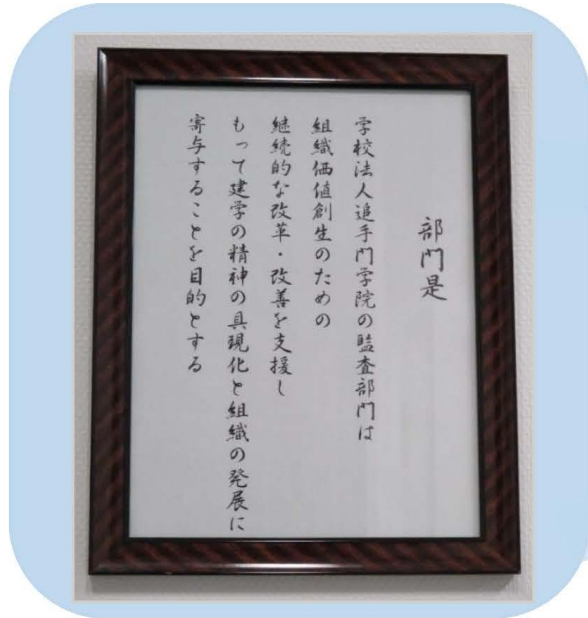 部門是
学校法人追手門学院の監査部門は
組織価値創生のための
継続的な改革・改善を支援し
もって建学の精神の具現化と組織の発展に
寄与することを目的とする